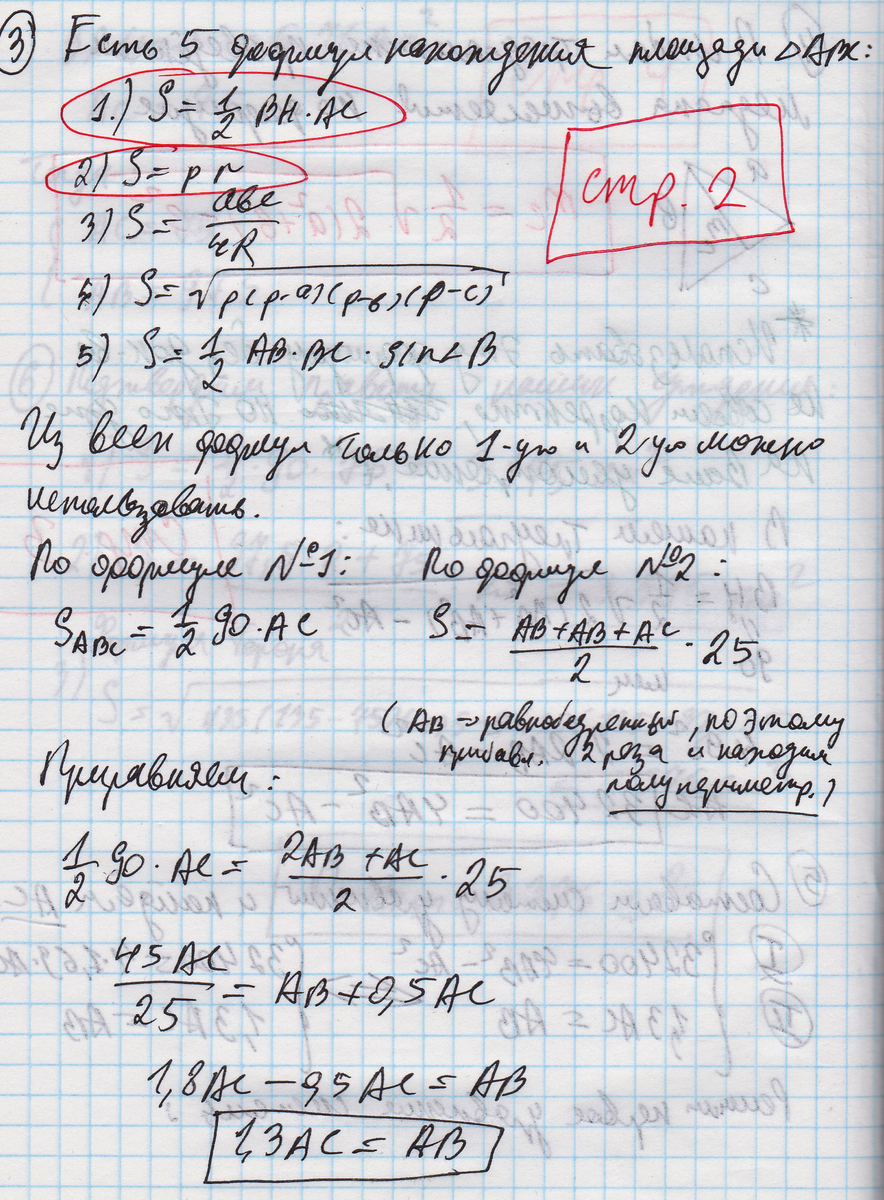 3) Есть 5 формул нахождения площади △ABC:
1.) S = 1/2 BH · AC
2) S = p r
стр. 2
3) S = abc/4R
4) S = √p(p-a)(p-b)(p-c)
5) S = 1/2 AB · BC · sin∠B
Из всех формул только 1-ую и 2-ую можно
использовать.
По формуле №1: По формуле №2:
S_ABC = 1/2 90 · AC S = (AB + AB + AC)/2 · 25
(AB → равнобедренный, поэтому
прибавл. 2 раза и находим
полупериметр.)
Приравняем:
1/2 90 · AC = (2AB + AC)/2 · 25
45 AC/25 = AB + 0,5 AC
1,8 AC − 0,5 AC = AB
1,3 AC = AB